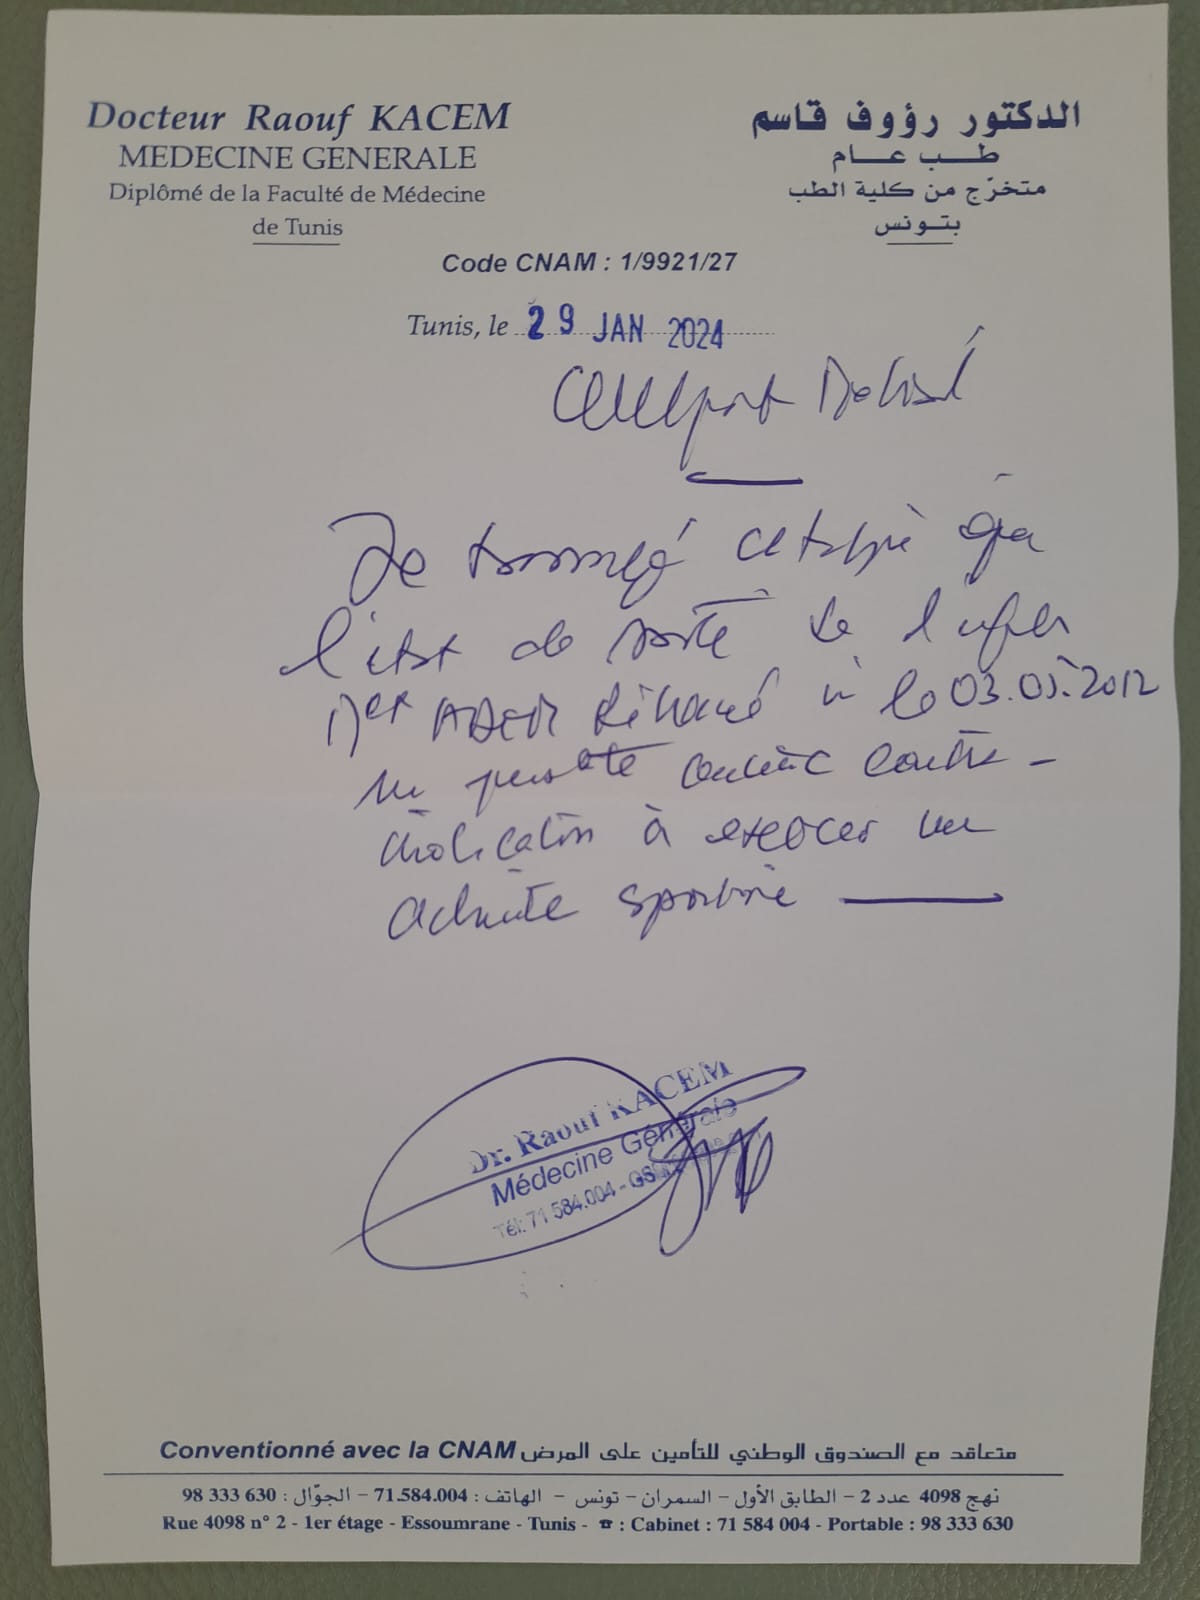 Docteur Raouf KACEM
MEDECINE GENERALE
Diplômé de la Faculté de Médecine
de Tunis
الدكتور رؤوف قاسم
طب عام
متخرّج من كلية الطب
بتونس
Code CNAM : 1/9921/27
Tunis, le 29 JAN 2024
Je soussigné certifie que
l'état de santé de l'enfant
le 03.05.2012
contre-
indication à exercer une
activité sportive
Dr. Raouf KACEM
Médecine Générale
Tél: 71 584.004 -
Conventionné avec la CNAM متعاقد مع الصندوق الوطني للتأمين على المرض
نهج 4098 عدد 2 – الطابق الأول – السمران – تونس – الهاتف : 71.584.004 – الجوّال : 98 333 630
Rue 4098 n° 2 - 1er étage - Essoumrane - Tunis - ☎ : Cabinet : 71 584 004 - Portable : 98 333 630